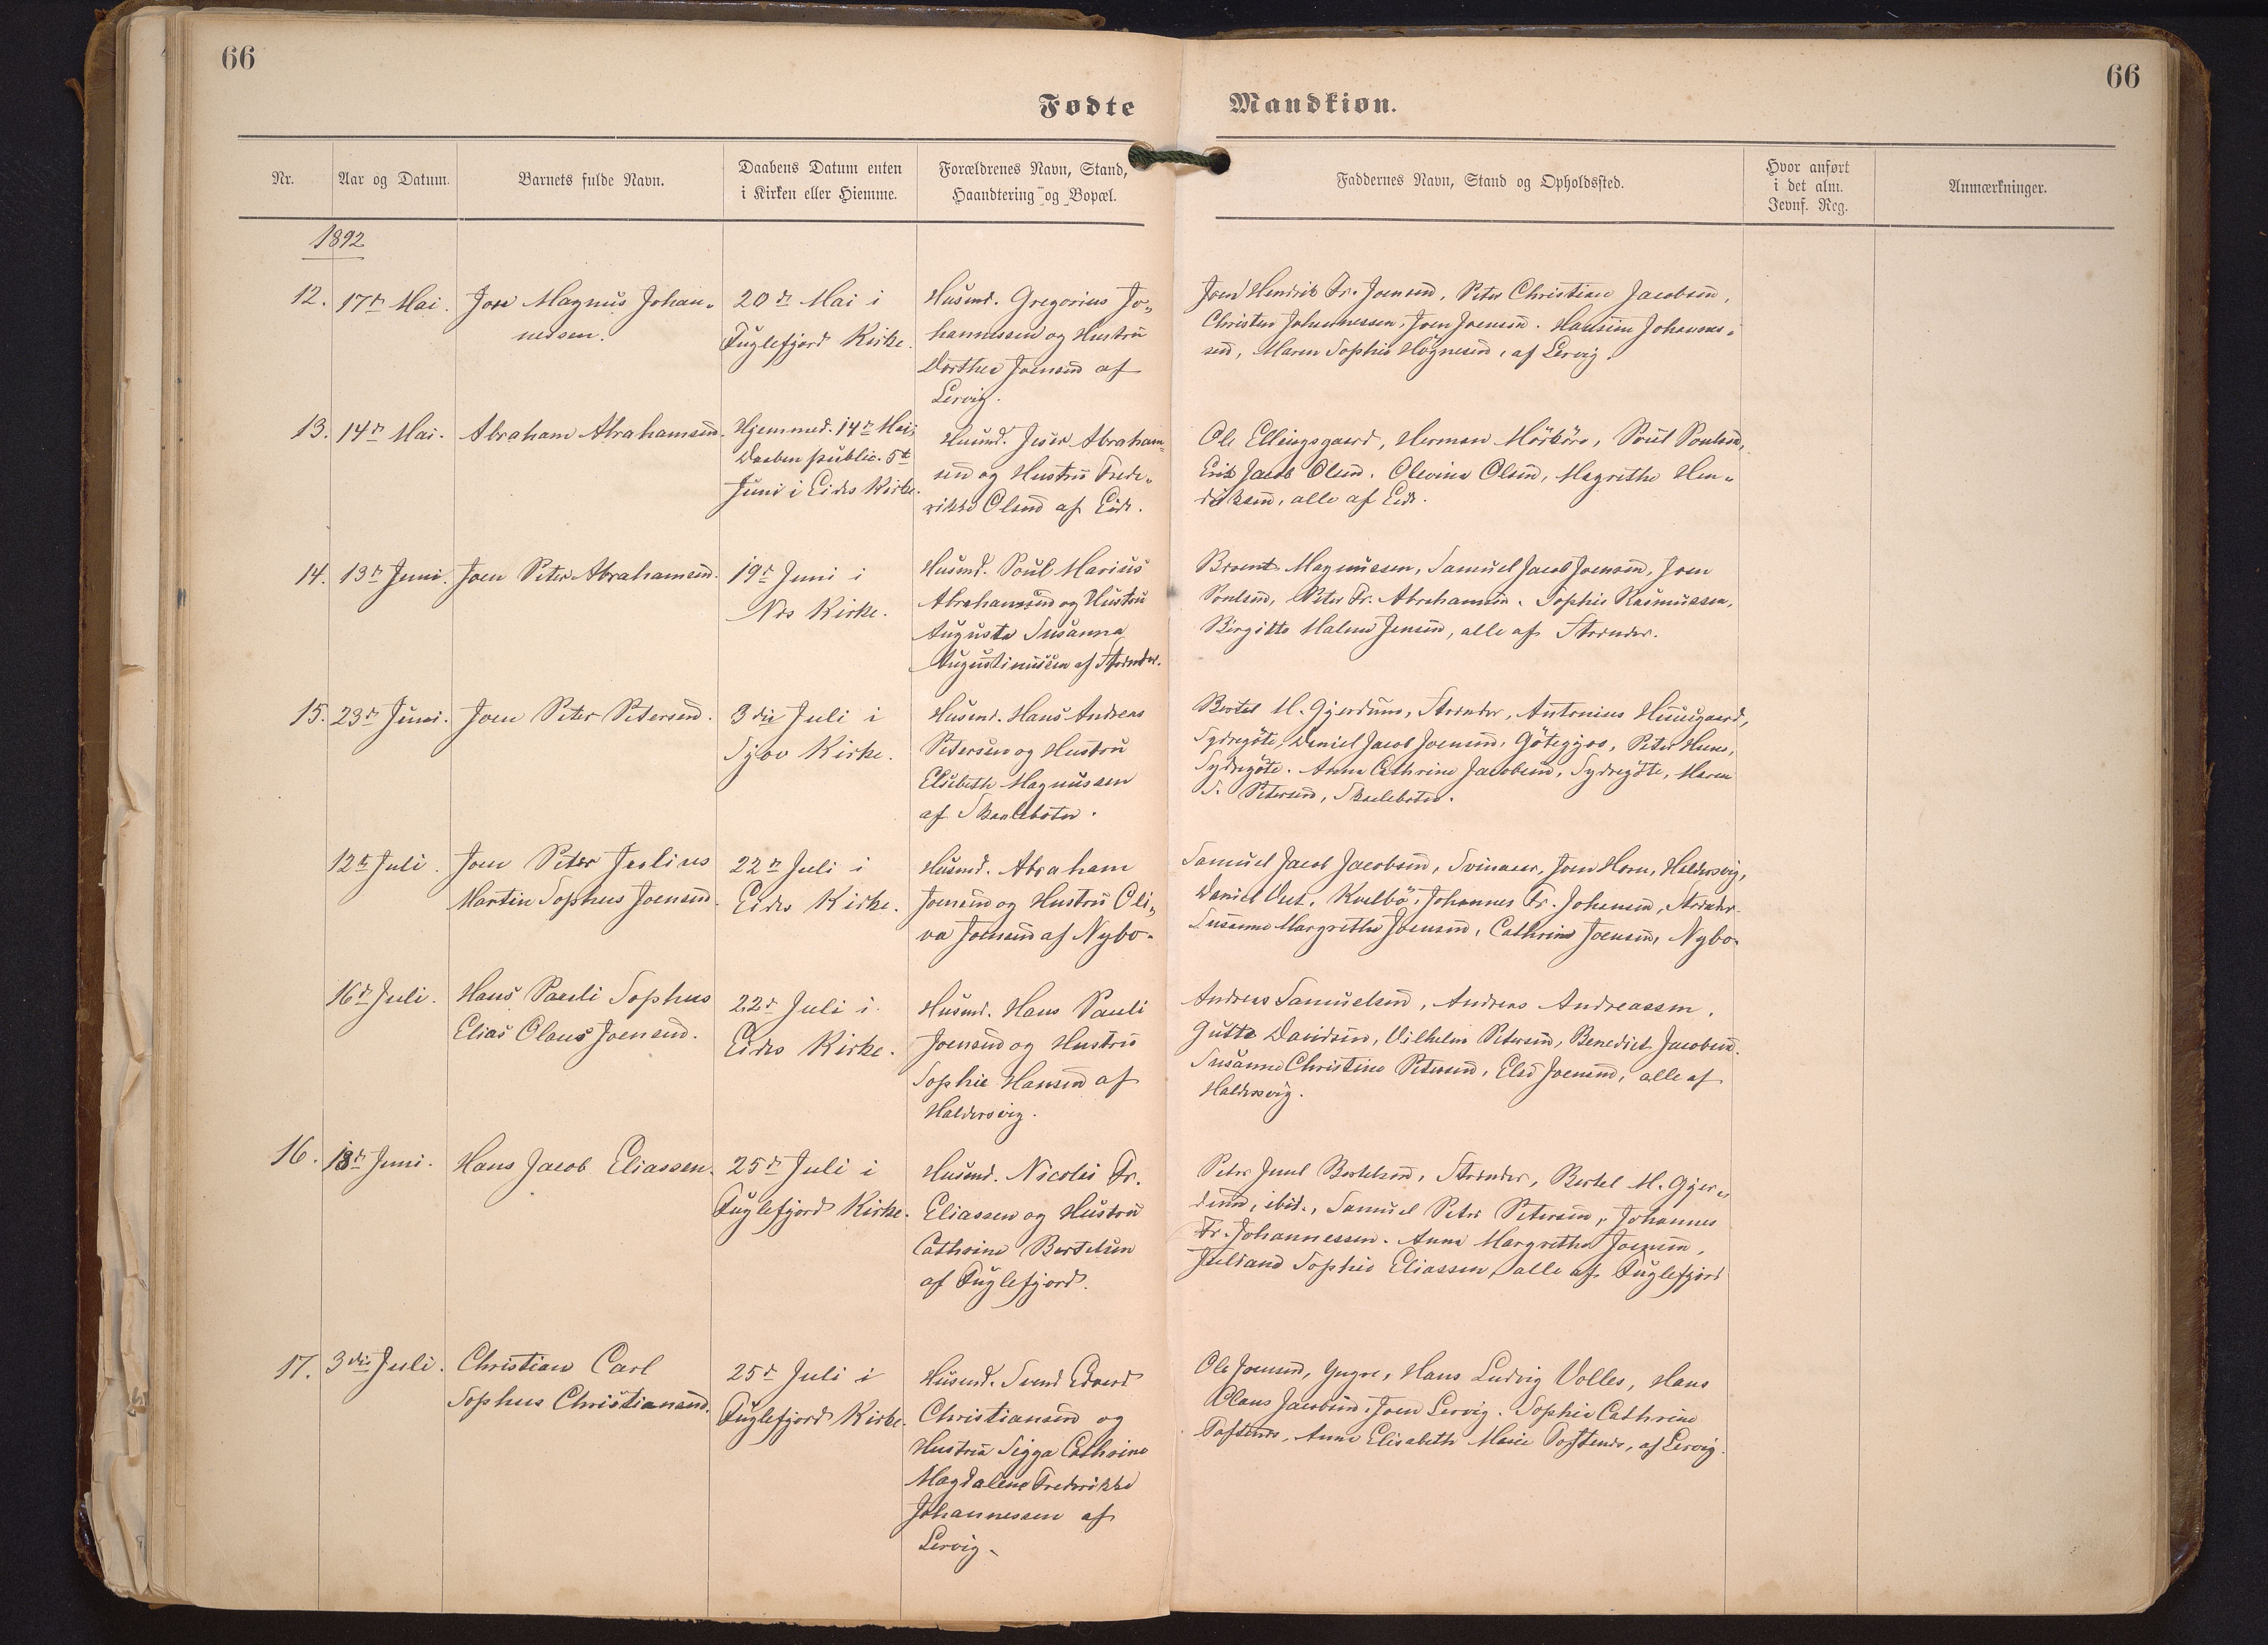 66
66
Fødte Mandkiøn.
Nr.
Aar og Datum.
Barnets fulde Navn.
Daabens Datum enten
i Kirken eller Hiemme.
Forældrenes Navn, Stand,
Haandtering og Bopæl.
Faddernes Navn, Stand og Opholdssted.
Hvor anført
i det alm.
Jevnf. Reg.
Anmærkninger.
1892
12. 17de Mai.
Joen Magnus Johan-
nesen.
20de Mai i
Fuglefjord Kirke.
Husmd. Gregorius Jo-
hannessen og Hustru
Dorthea Joensen af
Lervig.
Joen Hendrik Fr. Joensen, Peter Christian Jacobsen,
Christen Johannessen, Joen Joensen. Hansine Johannes-
sen, Maren Sophie Høgnesen, af Lervig.
13. 14de Mai.
Abraham Abrahamsen.
Hjemmed. 14de Mai;
Daaben public. 5te
Juni i Eides Kirke.
Husmd. Jesper Abraham-
sen og Hustru Frede-
rikke Olsen af Eide.
Ole Ellingsgaard, Herman Mörköre, Poul Poulsen,
Erik Jacob Olsen. Olevina Olsen, Magrethe Hen-
driksen, alle af Eide.
14. 13de Juni.
Joen Peter Abrahamsen.
19de Juni i
Nes Kirke.
Husmd. Poul Marius
Abrahamsen og Hustru
Augusta Susanna
Augustinussen af Strender.
Brvent Magnussen, Samuel Jacob Joensen, Joen
Poulsen, Peter Fr. Abrahamsen. Sophie Rasmussen,
Birgitte Malene Jensen, alle af Strender.
15. 23de Juni.
Joen Peter Petersen.
3die Juli i
Sjov Kirke.
Husmd. Hans Andreas
Petersen og Hustru
Elsebeth Magnussen
af Skaalebotn.
Bertel M. Gjerdum, Strender, Antonius Huusgaard,
Sydregöte, Daniel Jacob Joensen, Götegjov, Peter Hans,
Sydregöte. Anna Cathrine Jacobsen, Sydregöte, Maren
S. Petersen, Skaalebotn.
12te Juli.
Joen Peter Julius
Martin Sophus Joensen.
22de Juli i
Eides Kirke.
Husmd. Abraham
Joensen og Hustru Oli-
va Joensen af Nybo.
Samuel Jacob Jacobsen, Svinaaer, Joen Horn, Haldersvig,
Daniel Vest, Kvelbö, Johannes Fr. Johansen, Strender.
Susanne Margrethe Joensen, Cathrine Joensen, Nybo.
16de Juli.
Hans Pauli Sophus
Elias Olaus Joensen.
22de Juli i
Eides Kirke.
Husmd. Hans Pauli
Joensen og Hustru
Sophie Hansen af
Haldersvig.
Andreas Samuelsen, Andreas Andreassen,
Gutte Davidsen, Vilhelm Petersen, Benedict Jacobsen.
Susanne Christine Petersen, Else Joensen, alle af
Haldersvig.
16. 18de Juni.
Hans Jacob Eliassen.
25de Juli i
Fuglefjord Kirke.
Husmd. Nicolai Fr.
Eliassen og Hustru
Cathrine Bertelsen
af Fuglefjord.
Peter Juul Bertelsen, Strender, Bertel M. Gjer-
dum, ibid., Samuel Peter Petersen, Johannes
Fr. Johannessen. Anna Margrethe Joensen,
Juliane Sophie Eliassen, alle af Fuglefjord
17. 3die Juli.
Christian Carl
Sophus Christiansen.
25de Juli i
Fuglefjord Kirke.
Husmd. Svend Edvard
Christiansen og
Hustru Sigga Cathrine
Magdalene Frederikke
Johannessen af
Lervig.
Ole Joensen, Gygre, Hans Ludvig Volles, Hans
Olaus Jacobsen, Joen Lervig. Sophie Cathrine
Toftenes, Anna Elisabeth Marie Toftenes, af Lervig.